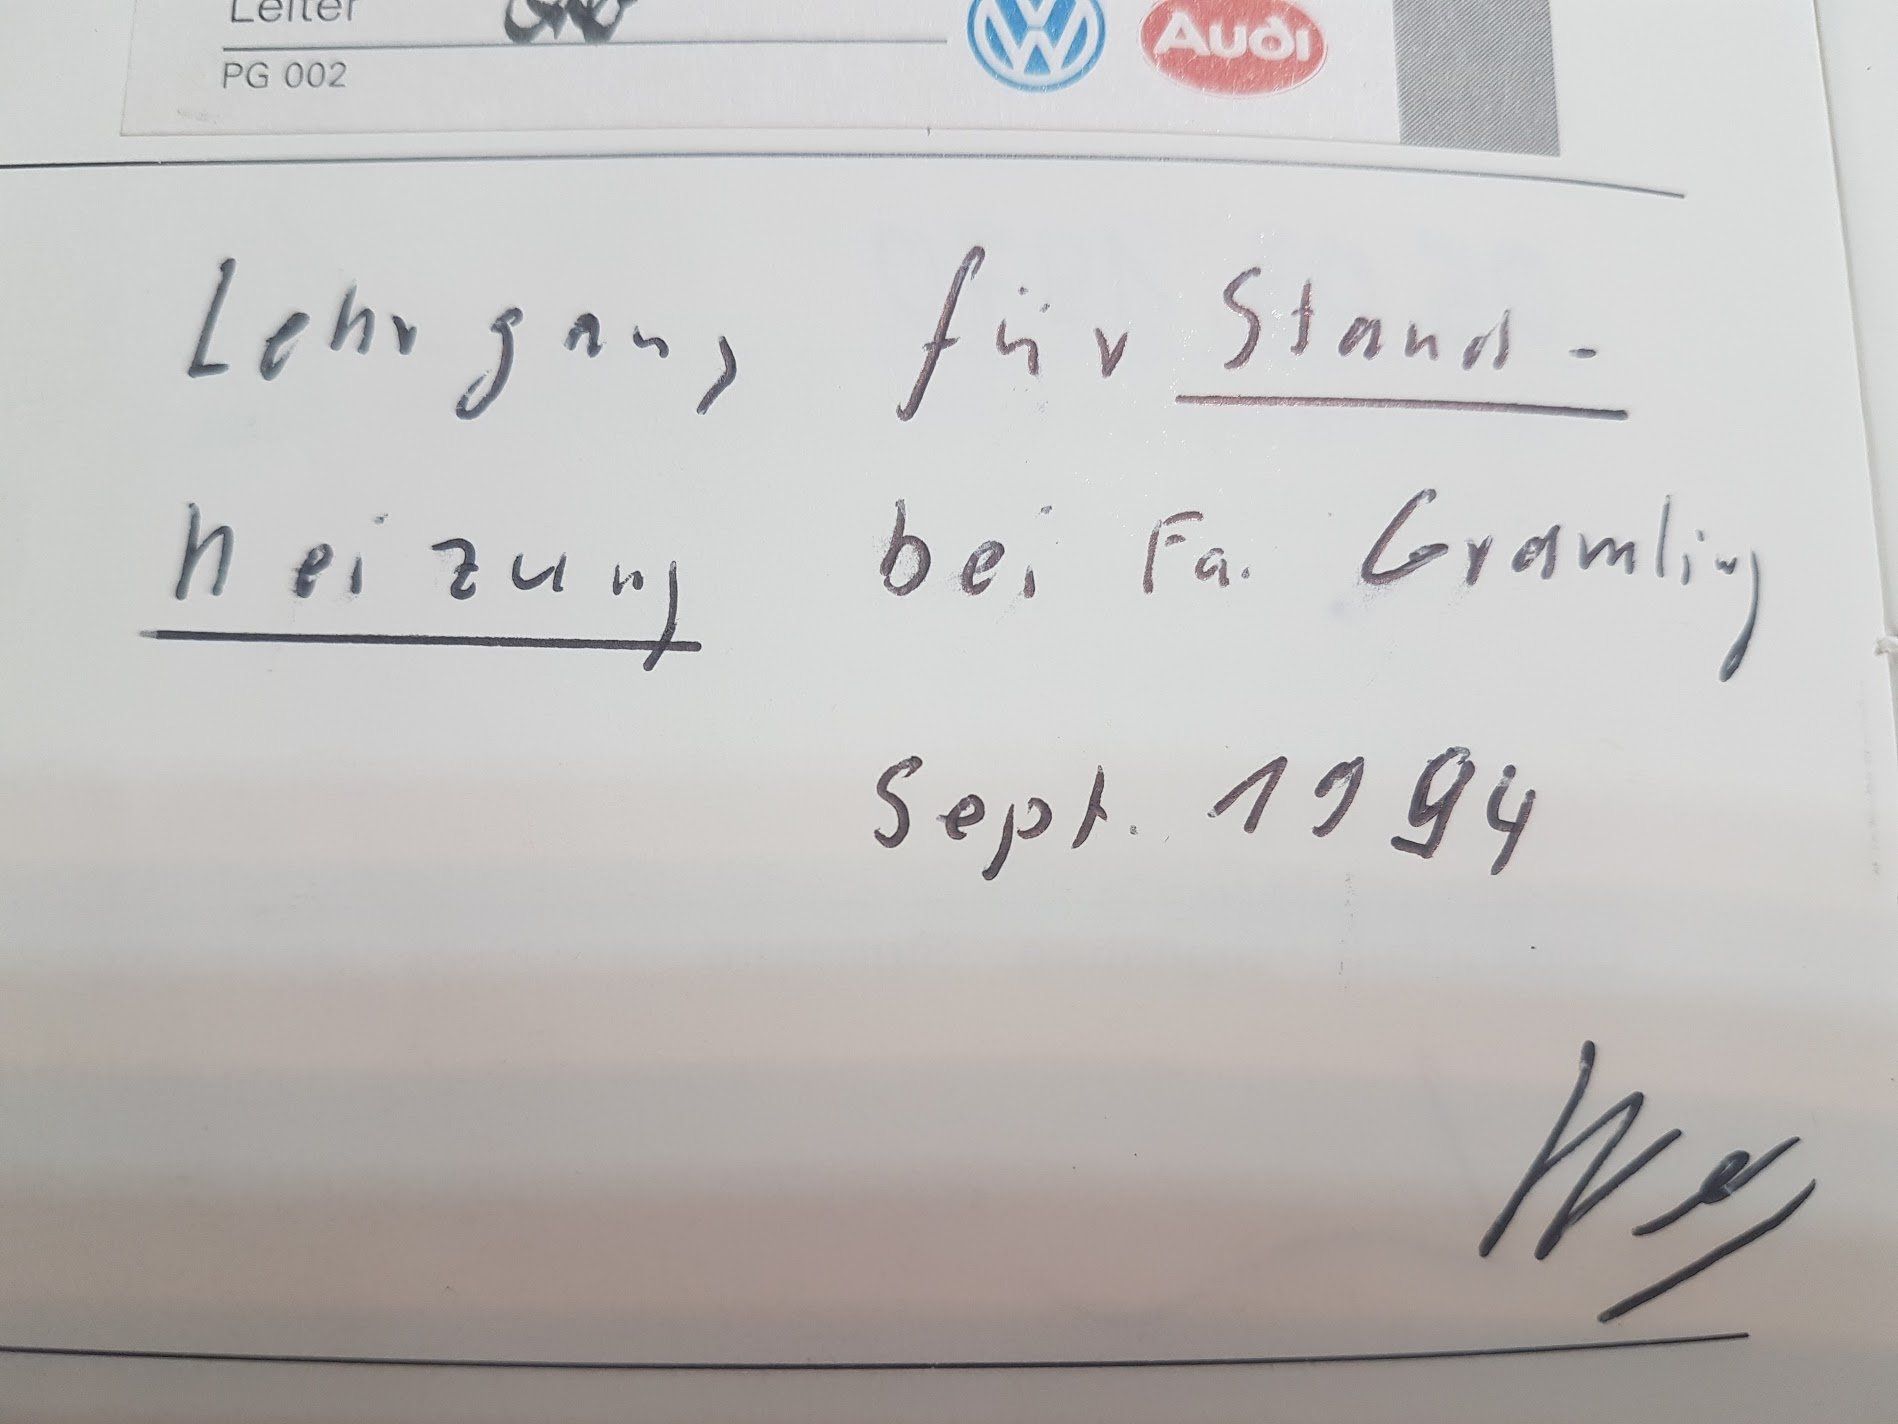 Leiter
PG 002
Audi
Lehrgang für Stand-
heizung bei Fa. Gramling
Sept. 1994